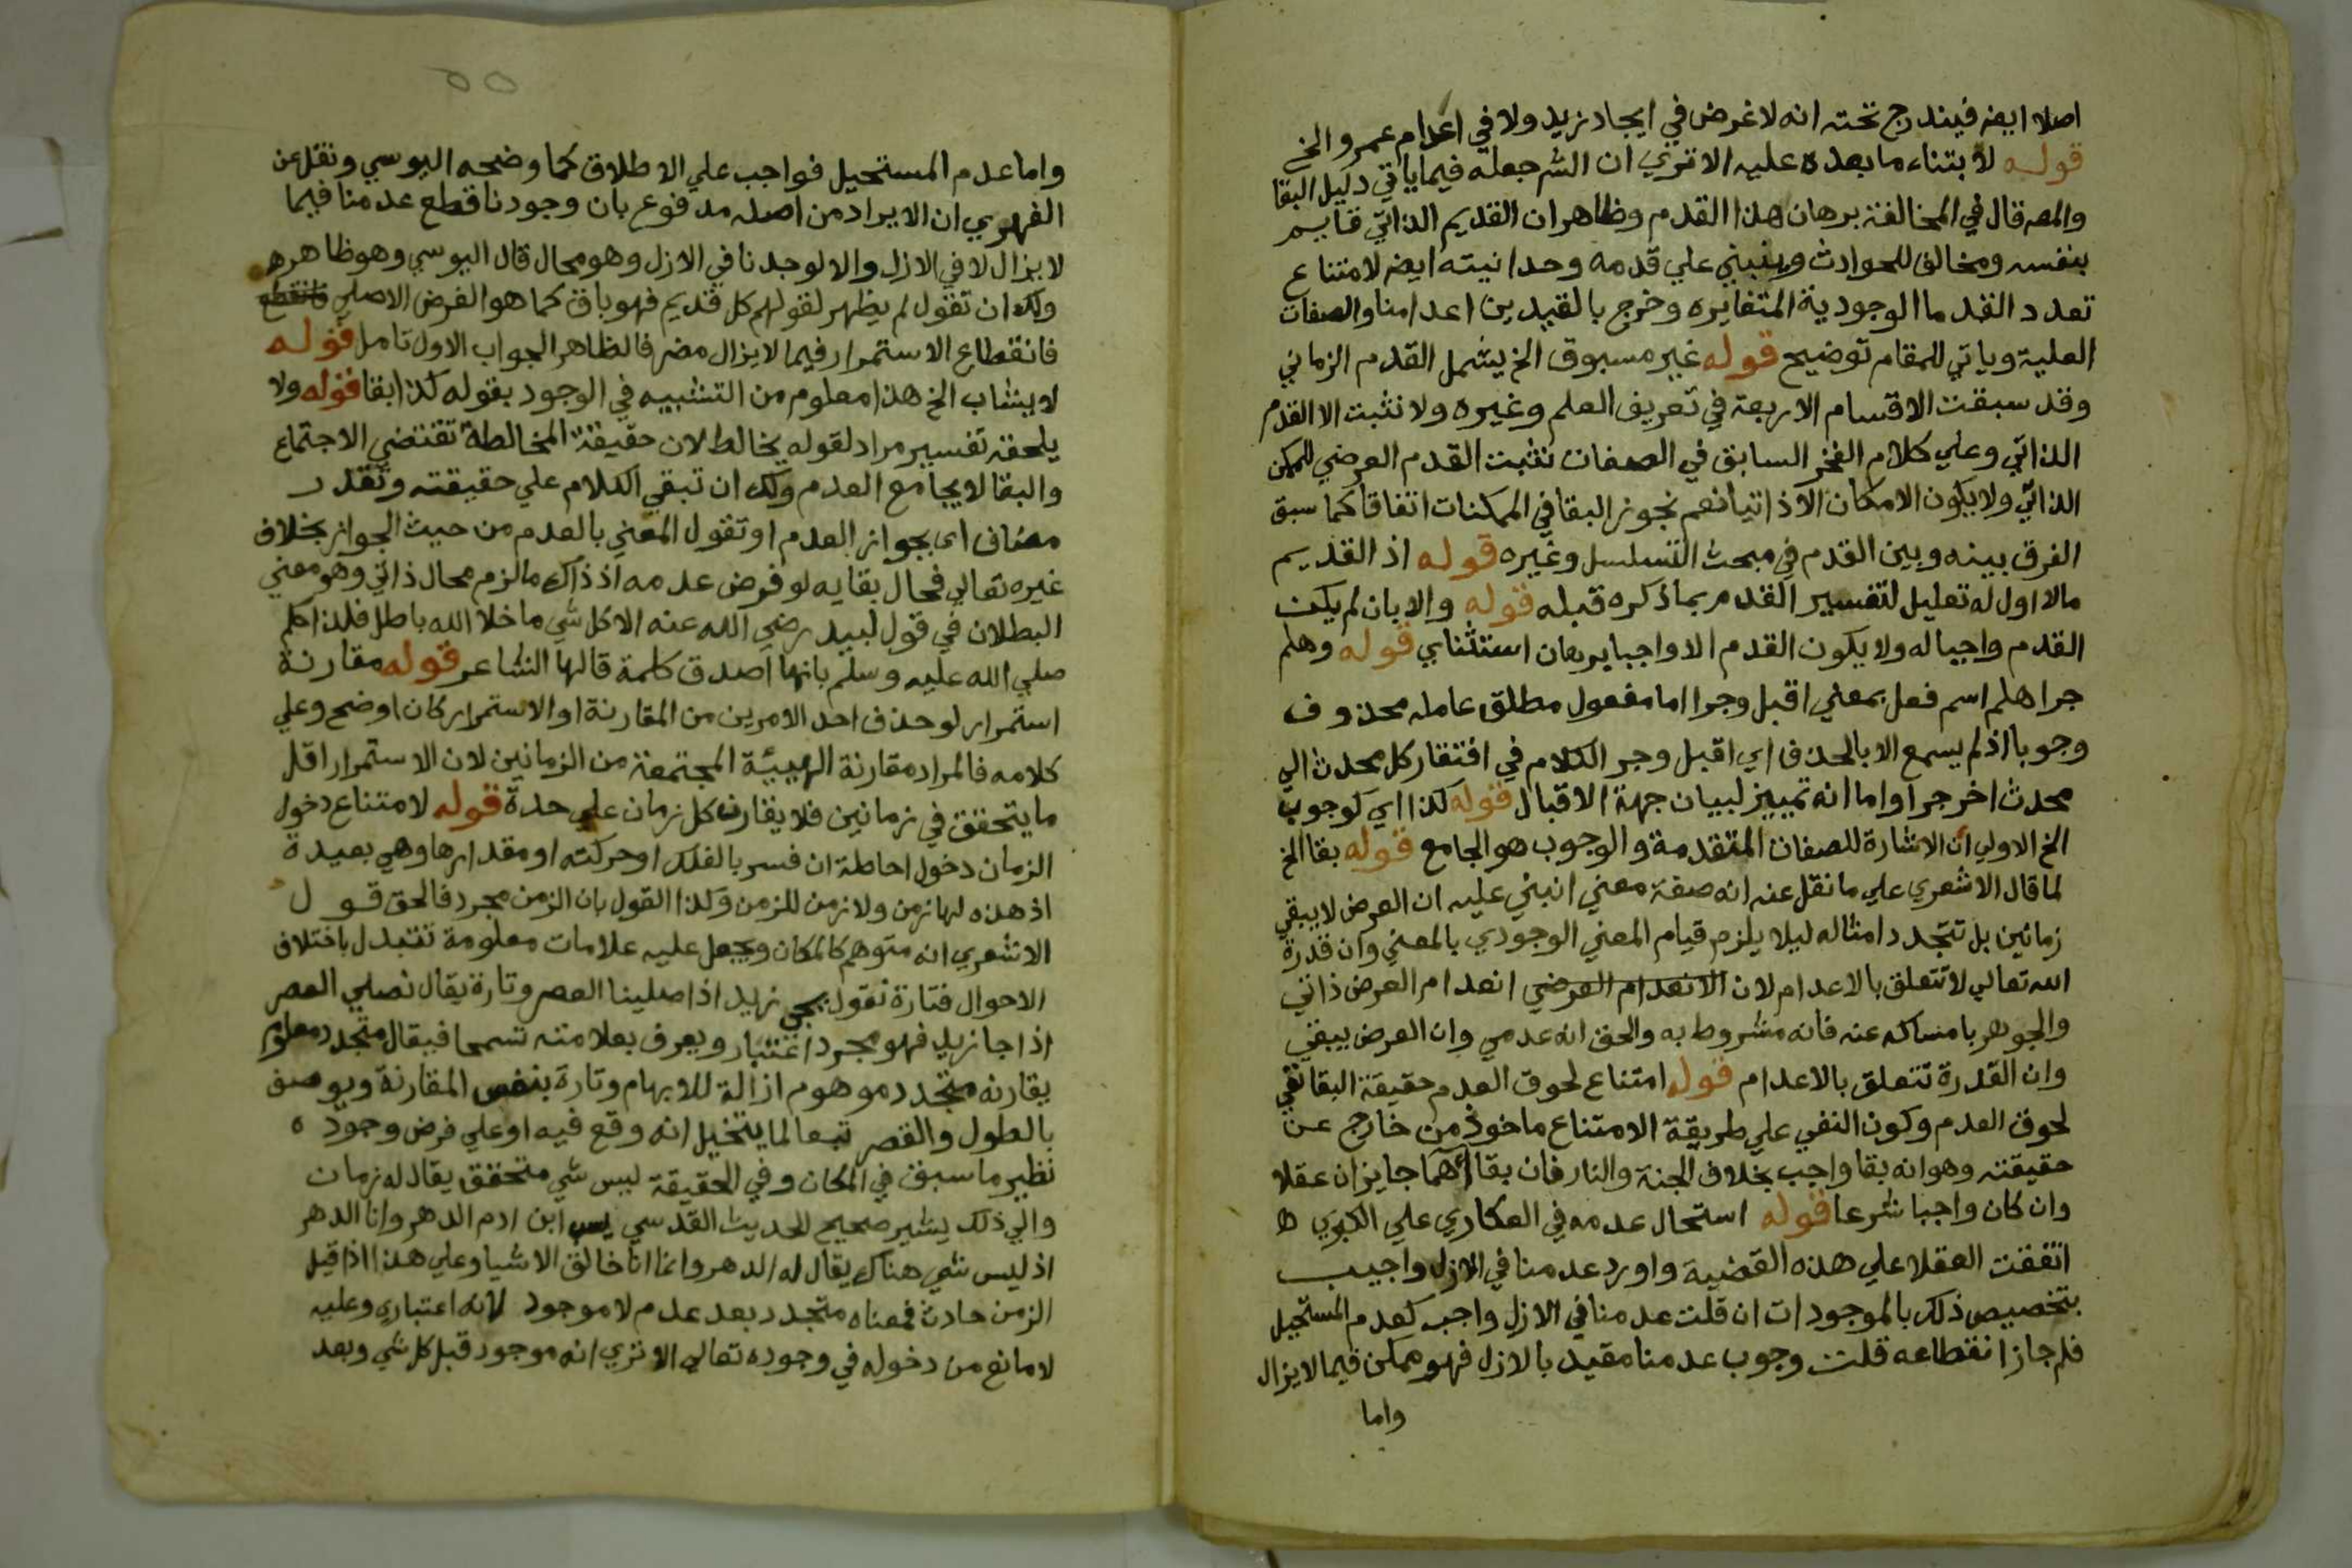 اصلا ايضا فيندرج تحته انه لاغرض في ايجاد زيد ولا في اعدام عمرو الخ
قوله لابتناء ما بعده عليه الا تري ان الشر جعله فيما ياتي دليل البقا
والمصه قال في المخالفة برهان هذا القدم وظاهر ان القديم الذاتي قايم
بنفسه ومخالف للحوادث وينبني علي قدمه وحدانيته ايضه لامتناع
تعدد القدما الوجودية المتغايره وخرج بالقيدين اعدامنا والصفات
العلية وياتي للمقام توضيح قوله غير مسبوق الخ يشمل القدم الزماني
وقد سبقت الاقسام الاربعة في تعريف العلم وغيره ولا نثبت الا القدم
الذاتي وعلي كلام الفخر السابق في الصفات نثبت القدم العرضي للممكن
الذاتي ولا يكون الامكان الا ذاتيا نعم نجوز البقا في الممكنات اتفاقا كما سبق
الفرق بينه وبين القدم في مبحث التسلسل وغيره قوله اذ القديم
مالا اول له تعليل لتفسير القدم بما ذكره قبله قوله والا بان لم يكن
القدم واجبا له ولا يكون القدم الا واجبا برهان استثنايي قوله وهلم
جرا هلم اسم فعل بمعني اقبل وجرا اما مفعول مطلق عامله محذوف
وجوبا اذ لم يسمع الا بالحذف اي اقبل وجر الكلام في افتقار كل محدث الي
محدث اخر جرا واما انه تمييز لبيان جهة الاقبال قوله كذا اي كوجوب
الخ الاولي ان الاشارة للصفات المتقدمة والوجوب هو الجامع قوله بقا الخ
لما قال الاشعري علي ما نقل عنه انه صفة معني انبني عليه ان العرض لا يبقي
زمانين بل تتجدد امثاله ليلا يلزم قيام المعني الوجودي بالمعني وان قدرة
الله تعالي لا تتعلق بالاعدام لان الانعدام العرضي انعدام العرض ذاتي
والجوهر بامساكه عنه فانه مشروط به والحق انه عدمي وان العرض يبقي
وان القدرة تتعلق بالاعدام قوله امتناع لحوق العدم حقيقة البقا نفي
لحوق العدم وكون النفي علي طريقة الامتناع ماخوذ من خارج عن
حقيقته وهو انه بقا واجب بخلاف الجنة والنار فان بقاهما جايزان عقلا
وان كان واجبا شرعا قوله استحال عدمه في العكاري علي الكبري ه
اتفقت العقلا علي هذه القضية واورد عدمنا في الازل واجيب
بتخصيص ذلك بالموجودات ان قلت عدمنا في الازل واجب كعدم المستحيل
فلم جاز انقطاعه قلت وجوب عدمنا مقيد بالازل فهو ممكن فيما لايزال
واما
٥٥
واما عدم المستحيل فواجب علي الاطلاق كما وضحه اليوسي ونقل عن
الفهري ان الايراد من اصله مدفوع بان وجودنا قطع عدمنا فيما
لا يزال لا في الازل والا لوجدنا في الازل وهو محال قال اليوسي وهو ظاهر ه
ولك ان تقول لم يظهر لقولهم كل قديم فهو باق كما هو الفرض الاصلي فانقطع
فانقطاع الاستمرار فيما لايزال مضر فالظاهر الجواب الاول تامل قوله
لا يشاب الخ هذا معلوم من التشبيه في الوجود بقوله كذا بقا قوله ولا
يلحقه تفسير مراد لقوله يخالط لان حقيقة المخالطة تقتضي الاجتماع
والبقا لا يجامع العدم ولك ان تبقي الكلام علي حقيقته وتقدر
مضاف اي بجواز العدم او تقول المعني بالعدم من حيث الجواز بخلاف
غيره تعالي فحال بقايه لو فرض عدمه اذ ذاك ما لزم محال ذاتي وهو معني
البطلان في قول لبيد رضي الله عنه الا كل شي ما خلا الله باطل فلذا حكم
صلي الله عليه وسلم بانها اصدق كلمة قالها الشاعر قوله مقارنة
استمرار لو حذف احد الامرين من المقارنة او الاستمرار كان اوضح وعلي
كلامه فالمراد مقارنة الهيئة المجتمعة من الزمانين لان الاستمرار اقل
ما يتحقق في زمانين فلا يقارن كل زمان علي حدة قوله لامتناع دخول
الزمان دخول احاطة ان فسر بالفلك او حركته او مقدارها وهي بعيدة
اذ هذه لها زمن ولا زمن للزمن وكذا القول بان الزمن مجرد فالحق قول
الاشعري انه متوهم كالمكان ويجعل عليه علامات معلومة تتبدل باختلاف
الاحوال فتارة نقول يجي زيد اذا صلينا العصر وتارة يقال نصلي العصر
اذا جا زيد فهو مجرد اعتبار ويعرف بعلامته تسمحا فيقال متجدد معلوم
يقارنه متجدد موهوم ازالة للابهام وتارة بنفس المقارنة ويوصف
بالطول والقصر تبعا لما يتخيل انه وقع فيه او علي فرض وجوده
نظير ما سبق في المكان وفي الحقيقة ليس شي متحقق يقال له زمان
والي ذلك يشير صحيح الحديث القدسي يسب ابن ادم الدهر وانا الدهر
اذ ليس شي هناك يقال له الدهر وانما انا خالق الاشيا وعلي هذا اذا قيل
الزمن حادث فمعناه متجدد بعد عدم لا موجود لانه اعتباري وعليه
لا مانع من دخوله في وجوده تعالي الا تري انه موجود قبل كل شي وبعد